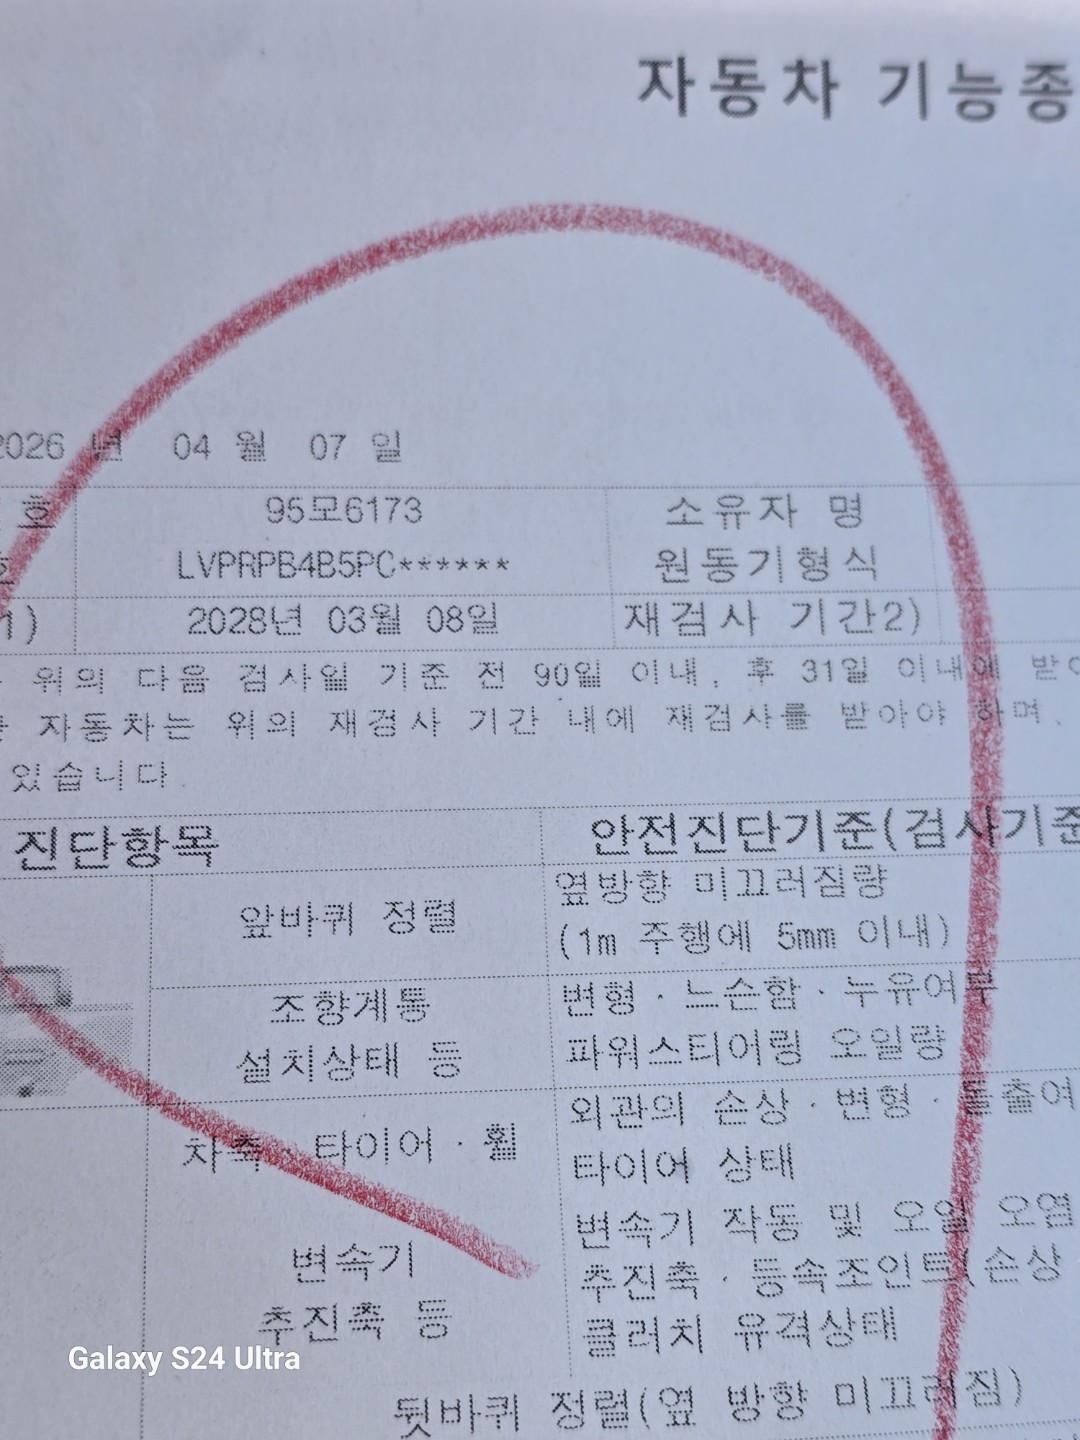 자동차 기능종
2026 년 04 월 07 일
호 95모6173 소유자 명
호 LVPRPB4B5PC****** 원동기형식
1) 2028년 03월 08일 재검사 기간2)
위의 다음 검사일 기준 전 90일 이내, 후 31일 이내에 받아
자동차는 위의 재검사 기간 내에 재검사를 받아야 하며,
있습니다.
진단항목 안전진단기준(검사기준
앞바퀴 정렬 옆방향 미끄러짐량
(1m 주행에 5mm 이내)
조향계통 변형·느슨함·누유여부
설치상태 등 파워스티어링 오일량
차축·타이어·휠 외관의 손상·변형·돌출여
타이어 상태
변속기 변속기 작동 및 오일 오염
추진축 등 추진축·등속조인트(손상
클러치 유격상태
뒷바퀴 정렬(옆 방향 미끄러짐)
Galaxy S24 Ultra